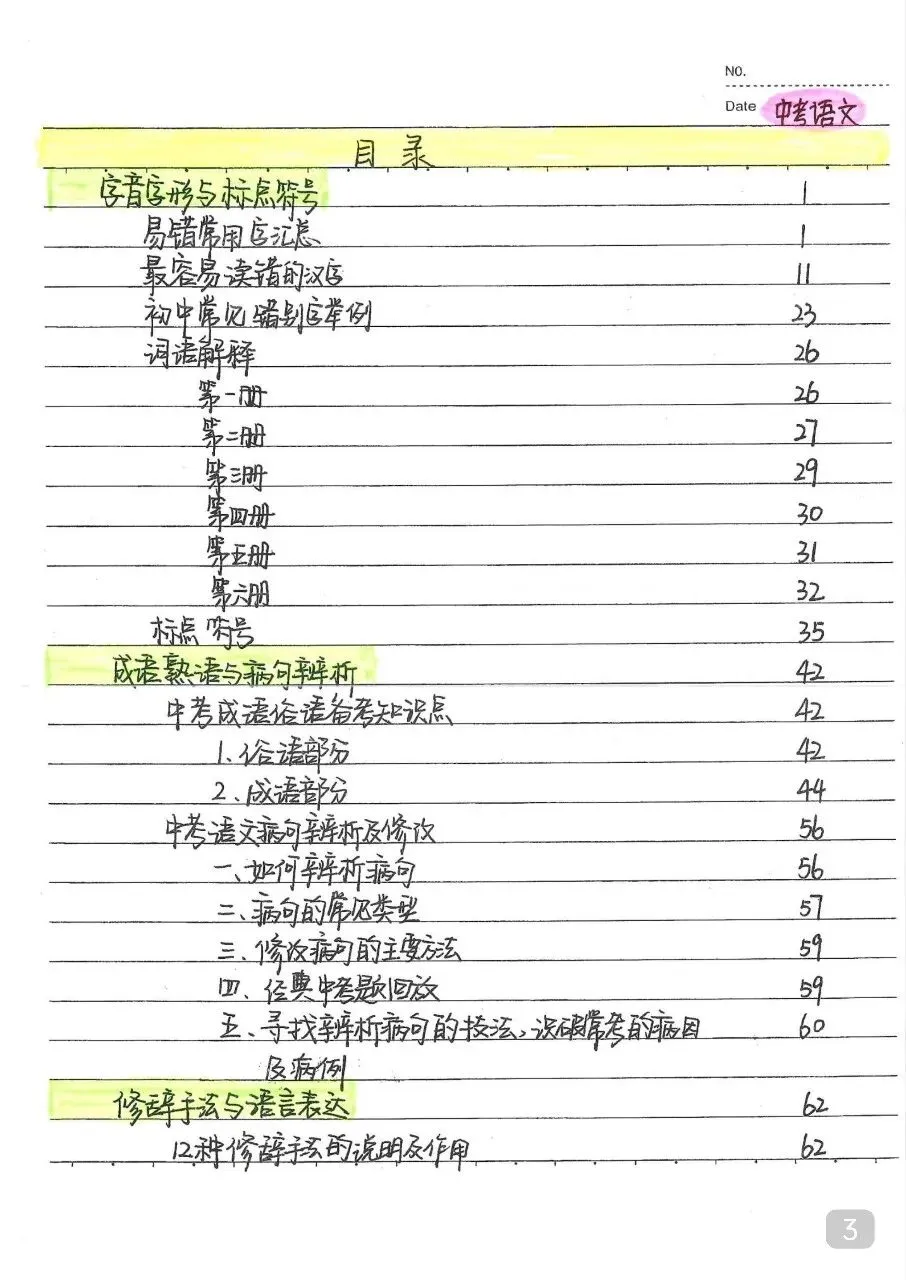 NO.
Date 中考语文
目录
字音字形与标点符号 1
易错常用字汇总 1
最容易读错的汉字 11
初中常见错别字举例 23
词语解释 26
第一册 26
第二册 27
第三册 29
第四册 30
第五册 31
第六册 32
标点符号 35
成语熟语与病句辨析 42
中考成语俗语备考知识点 42
1、俗语部分 42
2、成语部分 44
中考语文病句辨析及修改 56
一、如何辨析病句 56
二、病句的常见类型 57
三、修改病句的主要方法 59
四、经典中考题回放 59
五、寻找辨析病句的技法,识破常考的病因 60
及病例
修辞手法与语言表达 62
12种修辞手法的说明及作用 62
3